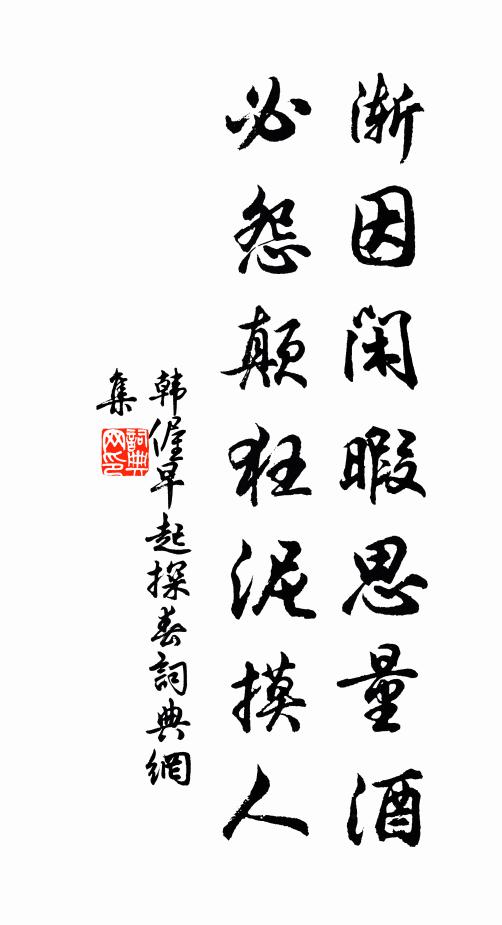 渐因闲暇思量酒
必怨颠狂泥摸人
韩偓早起探春詞典網
集
詞典
网印